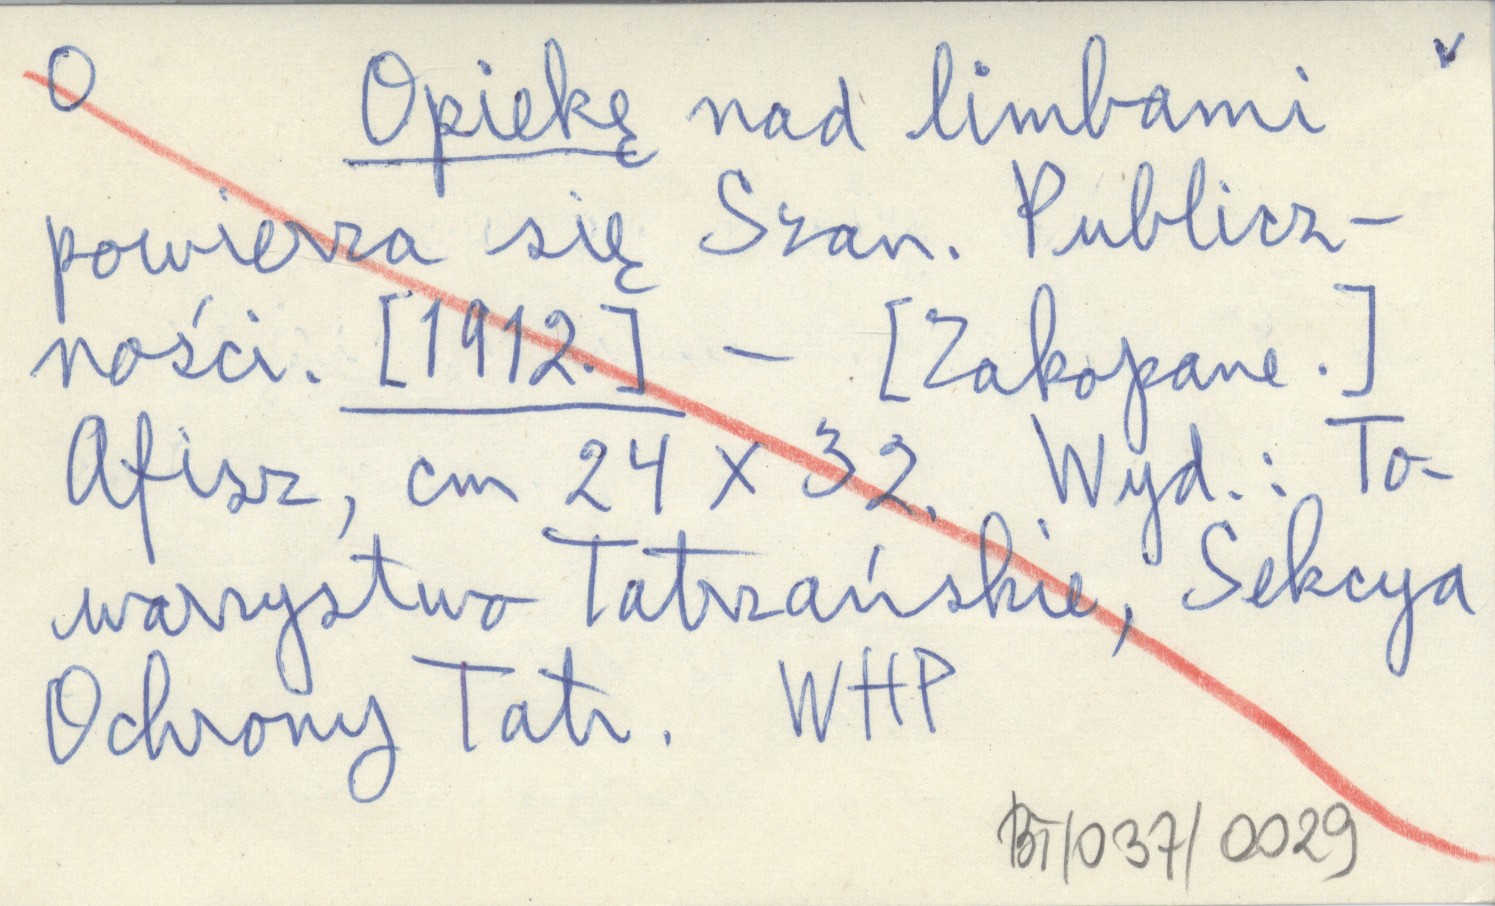 O Opiekę nad limbami
powierza się Szan. Publicz-
ności. [1912.] - [Zakopane.]
Afisz, cm 24 x 32. Wyd.: To-
warzystwo Tatrzańskie, Sekcya
Ochrony Tatr. WHP
BT/037/0029